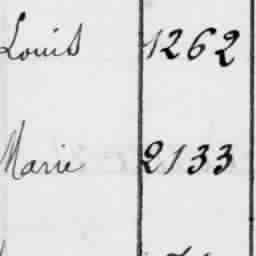 Louis 1262
Marie 2133